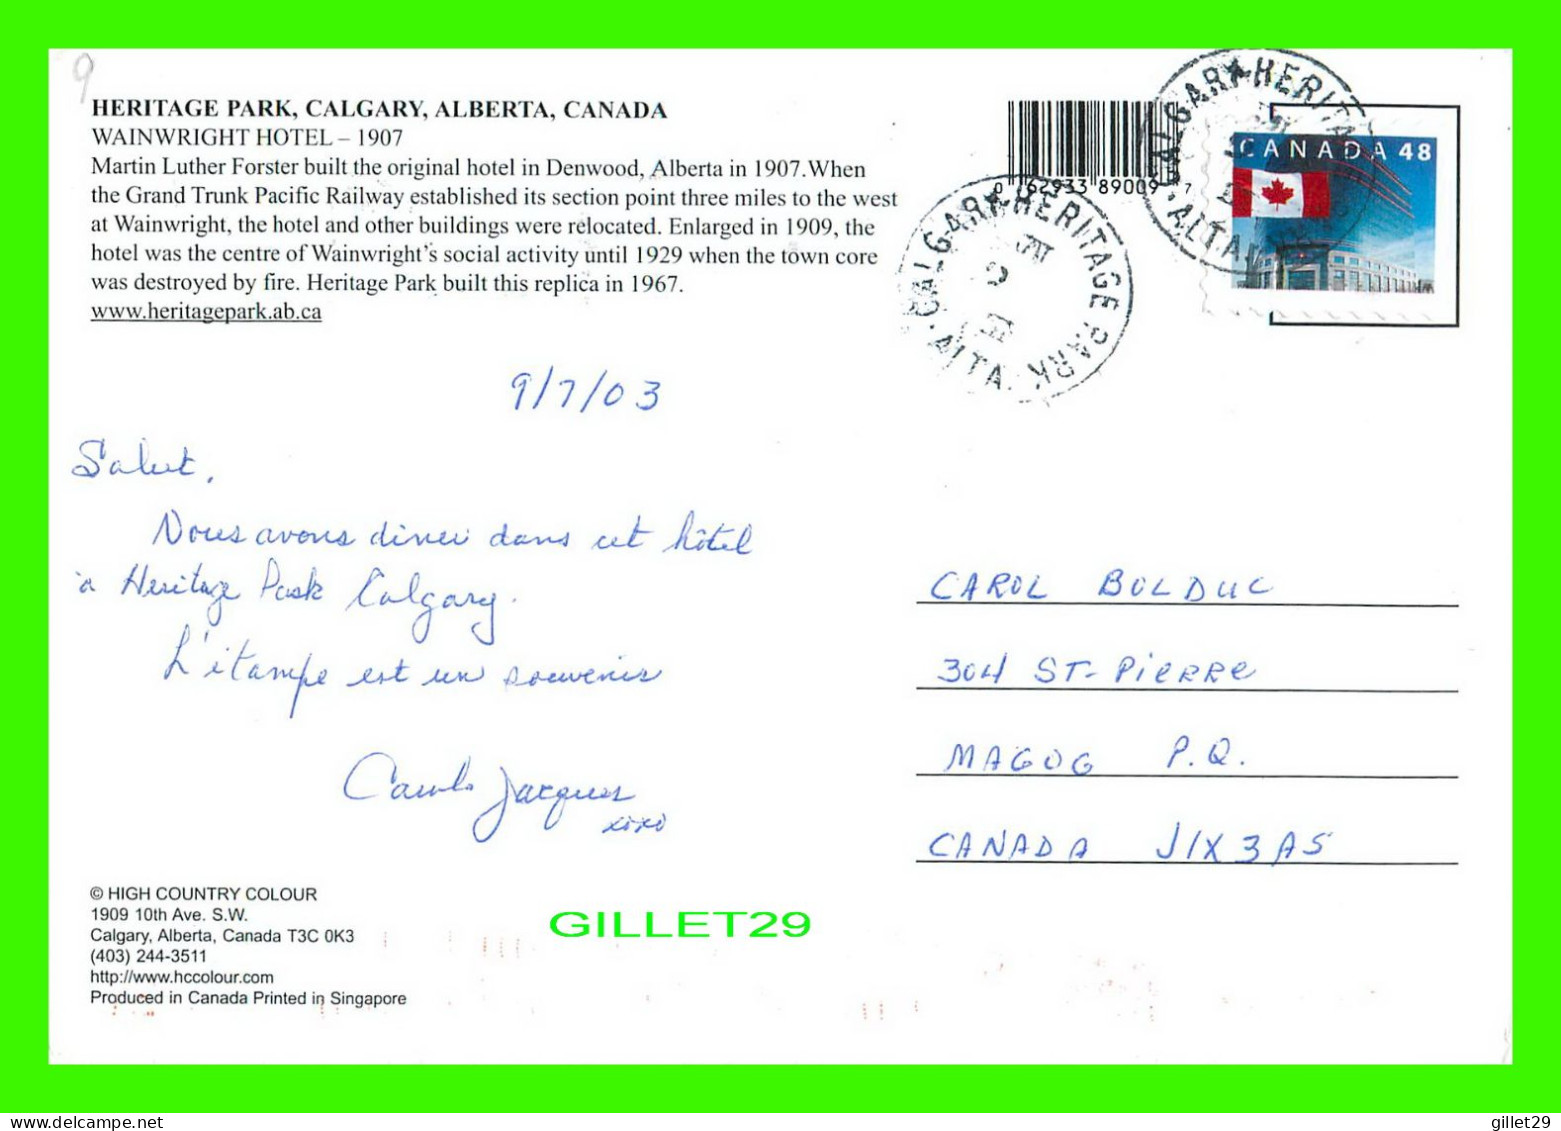 9
HERITAGE PARK, CALGARY, ALBERTA, CANADA
WAINWRIGHT HOTEL – 1907
Martin Luther Forster built the original hotel in Denwood, Alberta in 1907.When
the Grand Trunk Pacific Railway established its section point three miles to the west
at Wainwright, the hotel and other buildings were relocated. Enlarged in 1909, the
hotel was the centre of Wainwright's social activity until 1929 when the town core
was destroyed by fire. Heritage Park built this replica in 1967.
www.heritagepark.ab.ca
0 62933 89009 7
CANADA 48
CALGARY-HERITAGE PARK
ALTA.
CALGARY-HERITAGE PARK
ALTA.
9/7/03
Salut,
Nous avons diner dans cet hôtel
à Heritage Park Calgary.
L'étampe est un souvenir
Jacques
xoxo
CAROL BOLDUC
304 ST-PiERRe
MAGOG P.Q.
CANADA J1X3A5
© HIGH COUNTRY COLOUR
1909 10th Ave. S.W.
Calgary, Alberta, Canada T3C 0K3
(403) 244-3511
http://www.hccolour.com
Produced in Canada Printed in Singapore
GILLET29
gillet29